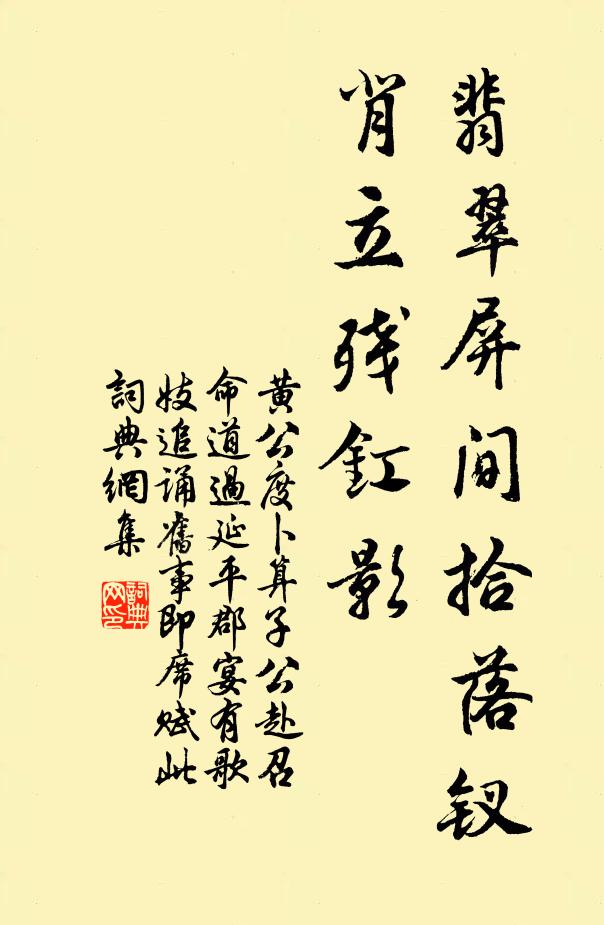 翡翠屏间拾落钗
背立残釭影
黄公度卜算子公赴召
命道過延平郡宴有歌
妓追诵舊事即席赋此
詞典網集
詞典网印